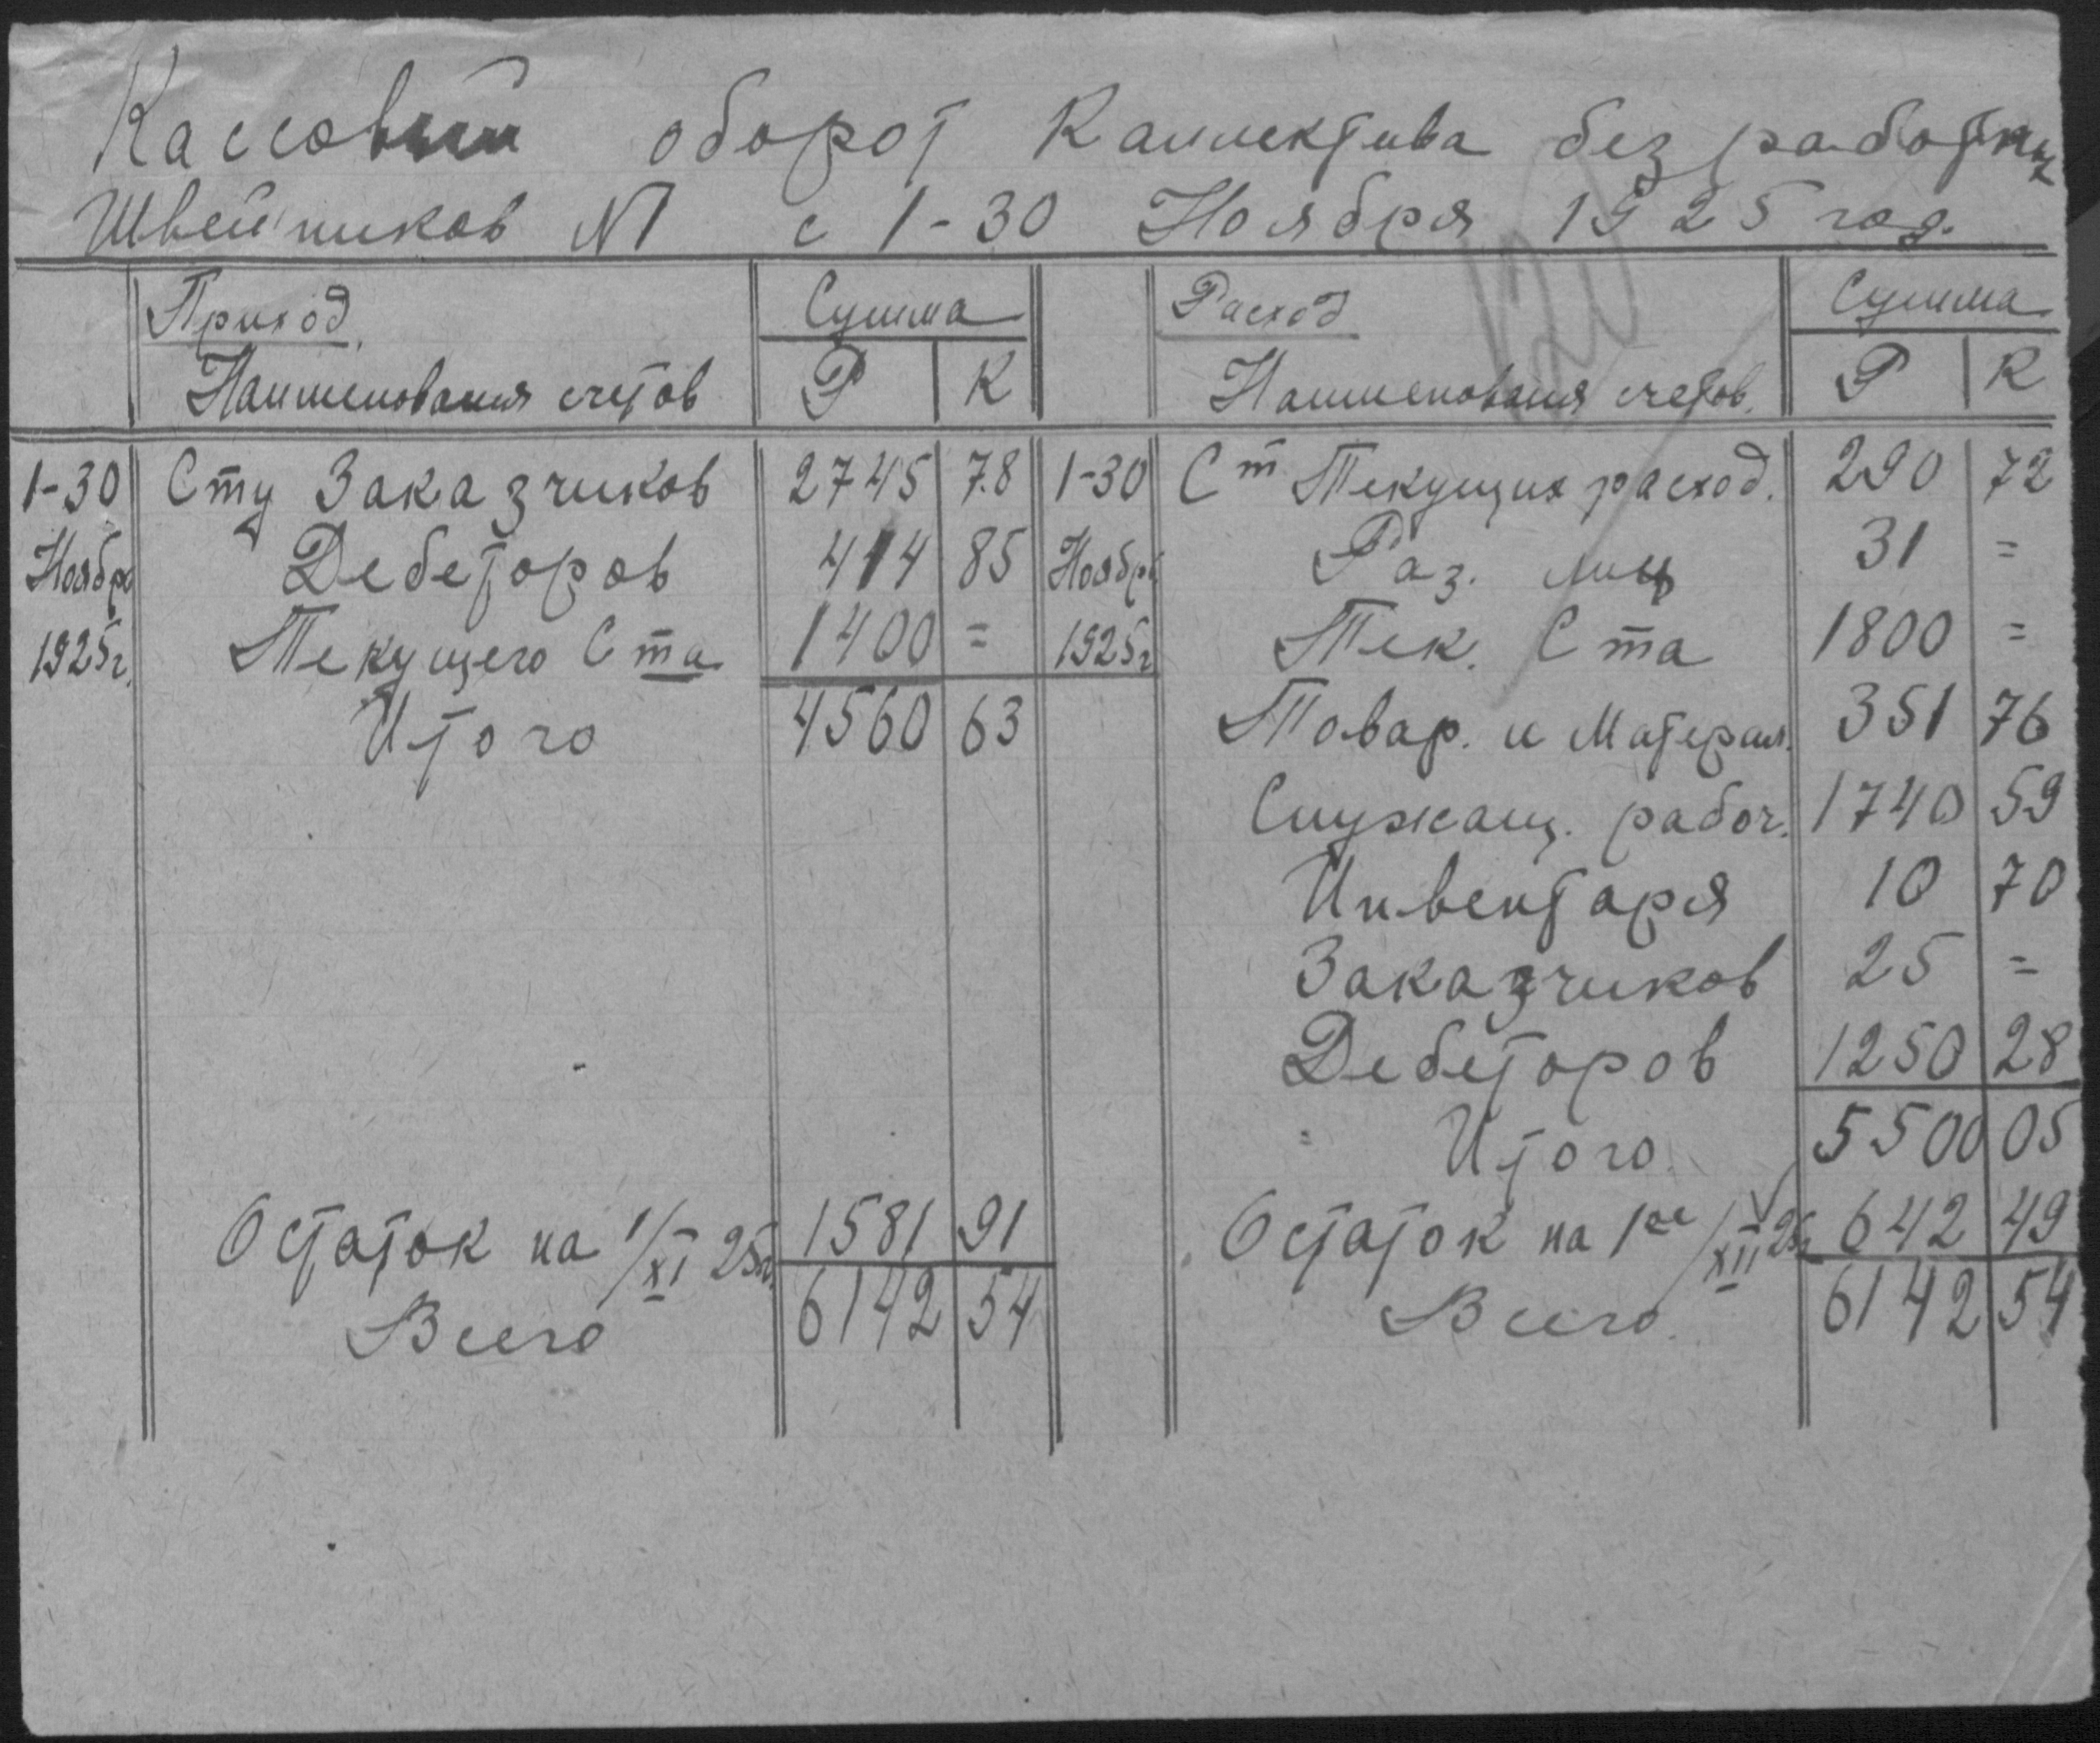 Кассовый оборот Каллектива безработных
Швейников N1 с 1-30 Ноября 1925 год.
120
Приход. Сумма Расход Сумма
Наименования счетов Р К Наименования счетов. Р К
1-30 Сту Заказчиков 2745 78 1-30 Ст Текущих расход. 290 72
Ноябр Дебеторов 414 85 Ноябр Раз. лиц 31 =
1925г. Текущего Ста 1400 = 1925г Тек. Ста 1800 =
Итого 4560 63 Товар. и Матерал. 351 76
Служащ. рабоч. 1740 59
Инвентаря 10 70
Заказчиков 25 =
Дебеторов 1250 28
Итого. 5500 05
Остаток на 1/XI 25г. 1581 91 Остаток на 1ое/XII 25г 642 49
Всего 6142 54 Всего. 6142 54